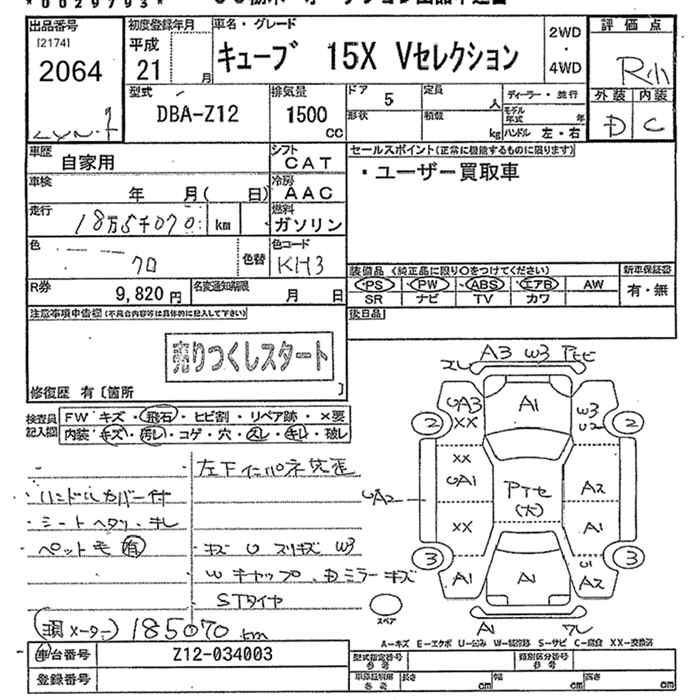 *0029793*
出品番号 初度登録年月 車名・グレード 2WD・4WD 評価点
[2174]
2064 平成21 月 キューブ 15X Vセレクション
型式 DBA-Z12 排気量 1500 CC
ドア 5 定員 人 ディーラー・並行
形状 積載 kg モデル年式 年 ハンドル 左・右
外装 内装
D C
車歴 自家用 シフト CAT
セールスポイント(正常に機能するものに限ります)
・ユーザー買取車
車検 年 月( 日) 冷房 AAC
走行 18万5千070 km 燃料 ガソリン
色 クロ 色替 色コード KH3
装備品 (純正品に限り○をつけてください) 新車保証書
PS PW ABS エアB AW 有・無
SR ナビ TV カワ
R券 9,820円 名変通知期限 月 日
後日品
注意事項申告欄(不具合内容等は具体的に記入して下さい)
売りつくしスタート
修復歴 有〔箇所 〕
検査員記入欄
FW キズ・飛石・ヒビ割・リペア跡・×要
内装・キズ・汚レ・コゲ・穴・スレ・キレ・破レ
・ハンドルカバー付
・シートヘタリ・キレ
・ペット毛 有
キズ U スリキズ W3
W キャップ
ミラーキズ
STタイヤ
メーター) 185070 km
A3 W3
UA3 XX A1 W3 U2
2 2
XX UA1 A2
UA2
(大)
XX A1
3 3
A1 A1 U1 A2
A1
スペア
A-キズ E-エクボ U-凹み W-補修跡 S-サビ C-腐食 XX-交換済
車台番号 Z12-034003
型式指定番号 参考 類別区分番号 参考
登録番号
車庫証明用 参考 長さ cm 幅 cm 高さ cm